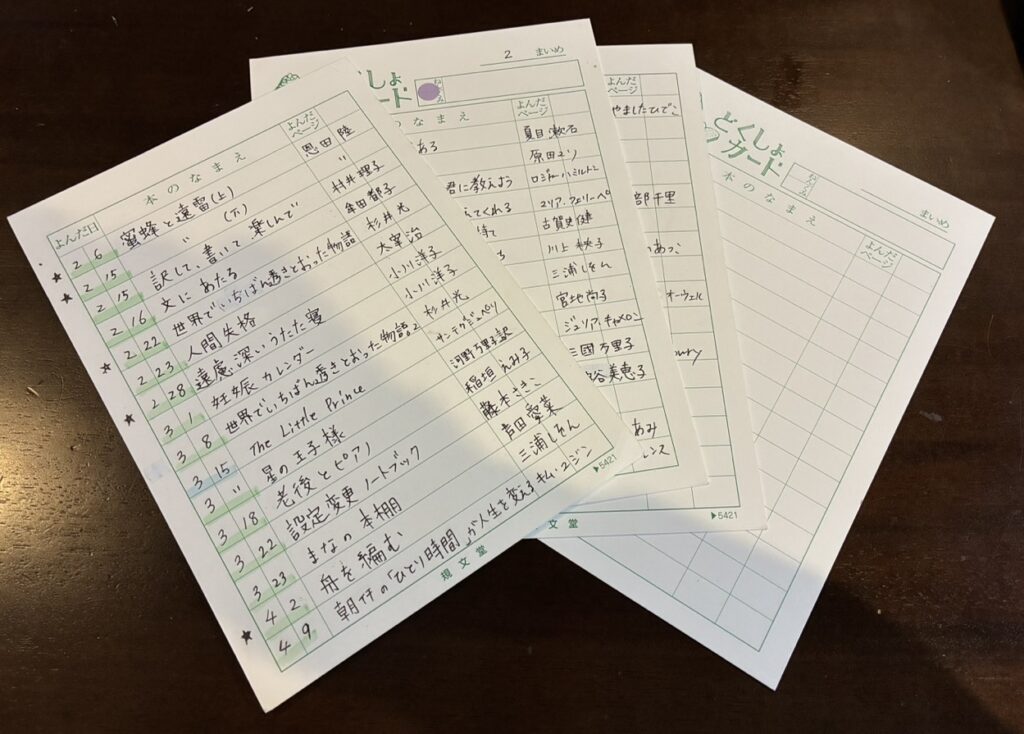 よんだ日 本のなまえ よんだページ
2 6 蜜蜂と遠雷(上) 恩田 陸
★ 2 15 〃 (下) 〃
★ 2 15 訳して、書いて 楽しんで 村井理子
2 16 文に あたる 牟田都子
2 22 世界でいちばん透きとおった物語 杉井光
2 23 人間失格 太宰治
★ 2 28 遠慮深いうたた寝 小川洋子
3 1 妊娠カレンダー 小川洋子
3 8 世界でいちばん透きとおった物語2 杉井光
★ 3 15 The Little Prince サンテグジュペリ
3 〃 星の王子様 河野万里子訳
3 18 老後とピアノ 稲垣えみ子
3 22 設定変更ノートブック 藤本さきこ
3 23 まなの本棚 芦田愛菜
4 2 舟を編む 三浦しをん
★ 4 9 朝イチの「ひとり時間」が人生を変える キム・ユジン
規文堂
▶5421
2 まいめ
くしょ
カード
なまえ
よんだページ
ある 夏目漱石
原田マハ
君に教えよう ロジャー・ハミルトン
えてくれる ユリア・フェリーペ
古賀史健
川上 映子
三浦しをん
宮地尚子
ジュリア・キャメロン
三國万里子
谷美恵子
よんだページ
やましたひでこ
部千里
いあつこ
オーウェル
あみ
レンス
文堂
▶5421
どくしょ
カード
まいめ
本のなまえ
よんだページ